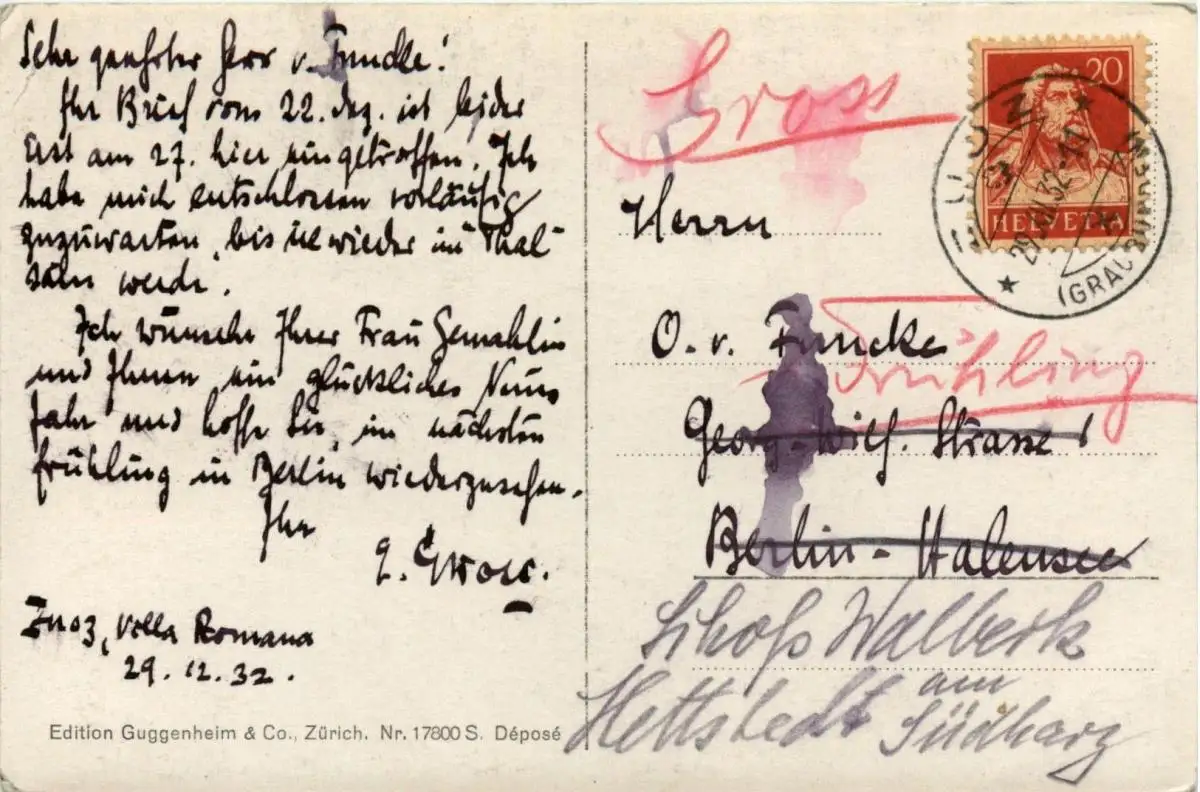 Sehr geehrter Herr v. Funcke!
Ihr Brief vom 22. dez. ist leider
Erst am 27. hier eingetroffen. Ich
habe mich entschlossen vorläufig
zuzuwarten, bis ich wieder im Thal
sein werde.
Ich wünsche Ihrer Frau Gemahlin
und Ihnen ein glückliches Neues
Jahr und hoffe Sie, im nächsten
frühling in Berlin wiederzusehen.
Ihr
Gross.
Zuoz, Villa Romana
29.12.32.
Edition Guggenheim & Co., Zürich. Nr. 17800 S. Déposé
Gross
20
HELVETIA
ZUOZ
29.XII.32.-11
(GRAUBÜNDEN)
Herrn
O. v. Funcke
Frühling
Georg-Wilh. Strasse 1
Berlin-Halensee
Schloß Walbeck
am
Hettstedt Südharz